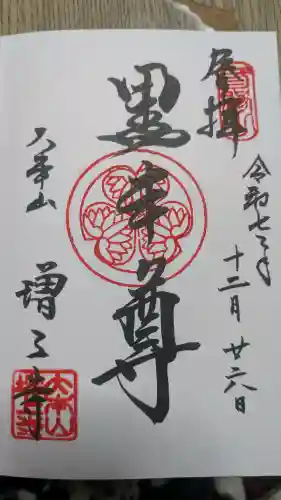 奉拝
令和七年
十二月廿六日
黒本尊
大本山
増上寺